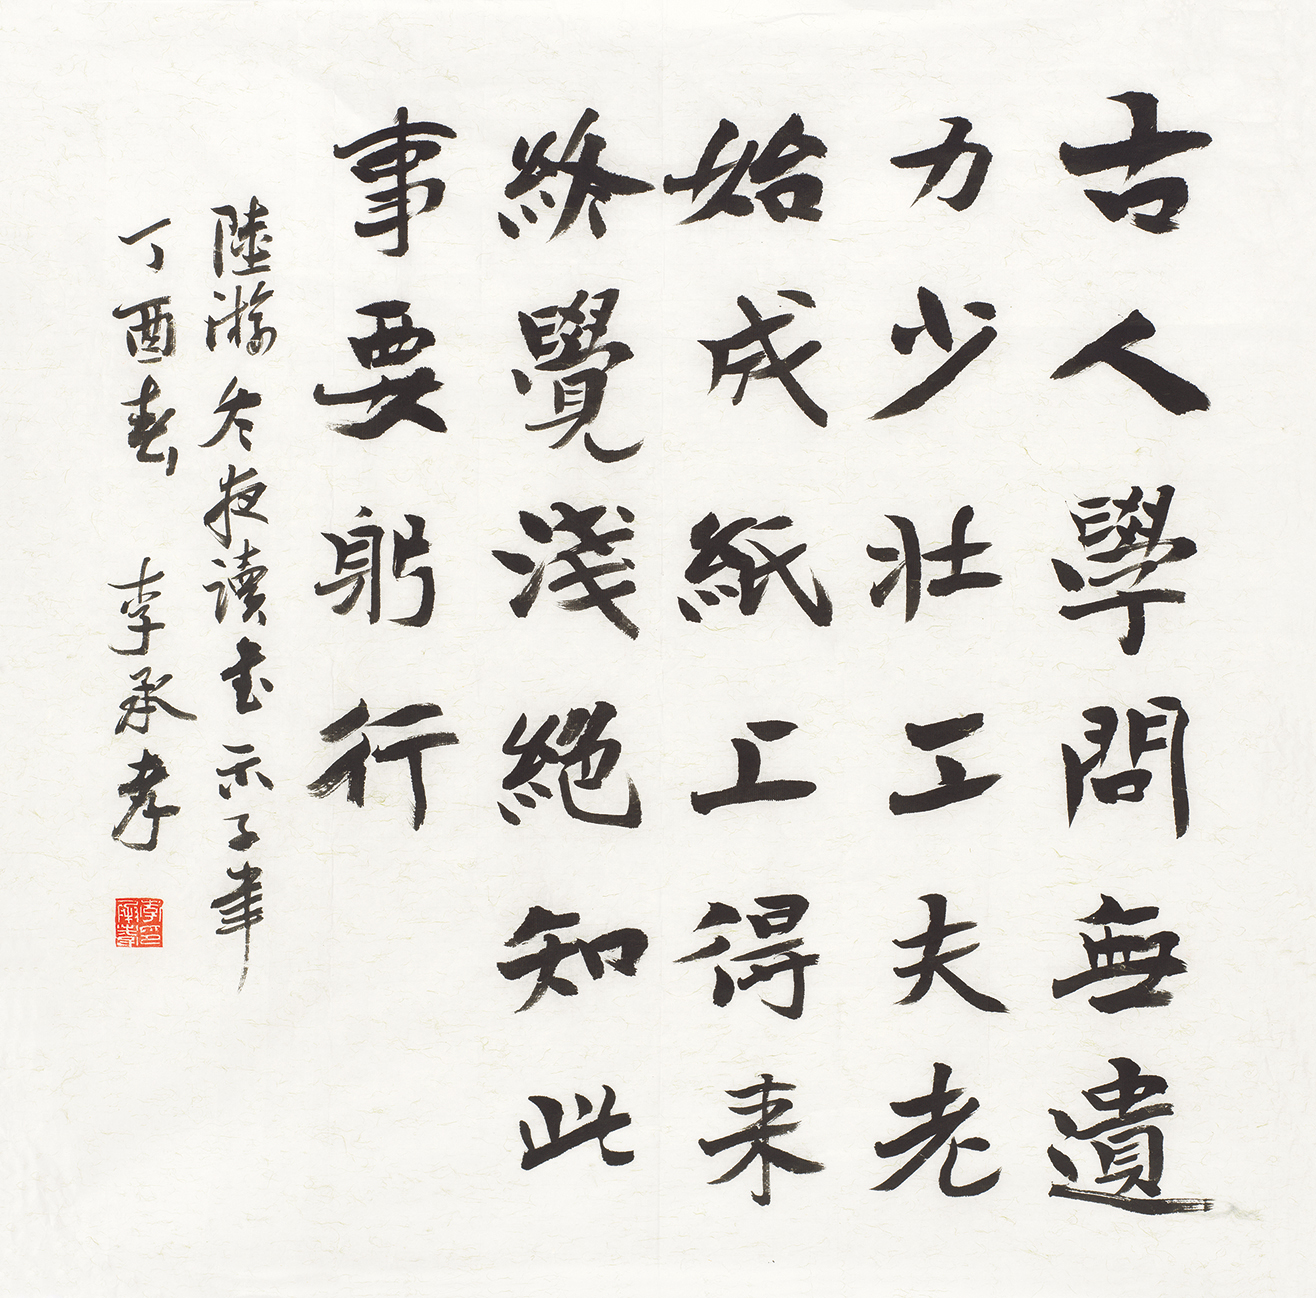 古人學問無遺
力少壯工夫老
始成紙上得来
終覺淺絕知此
事要躬行
陸游冬夜读书示子聿
丁酉春 李承孝